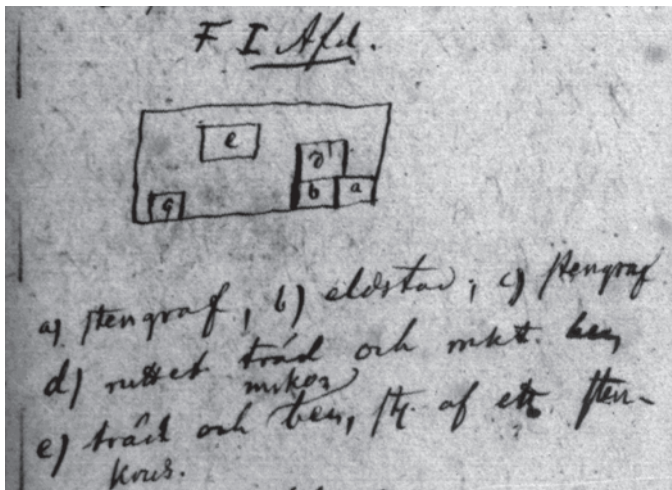 F I Afd.
e
d
c b a
a) stengraf, b) eldstad; c) stengraf
d) ruttet träd och mkt. ben
e) träd och ben, st. af ett sten-
krus.